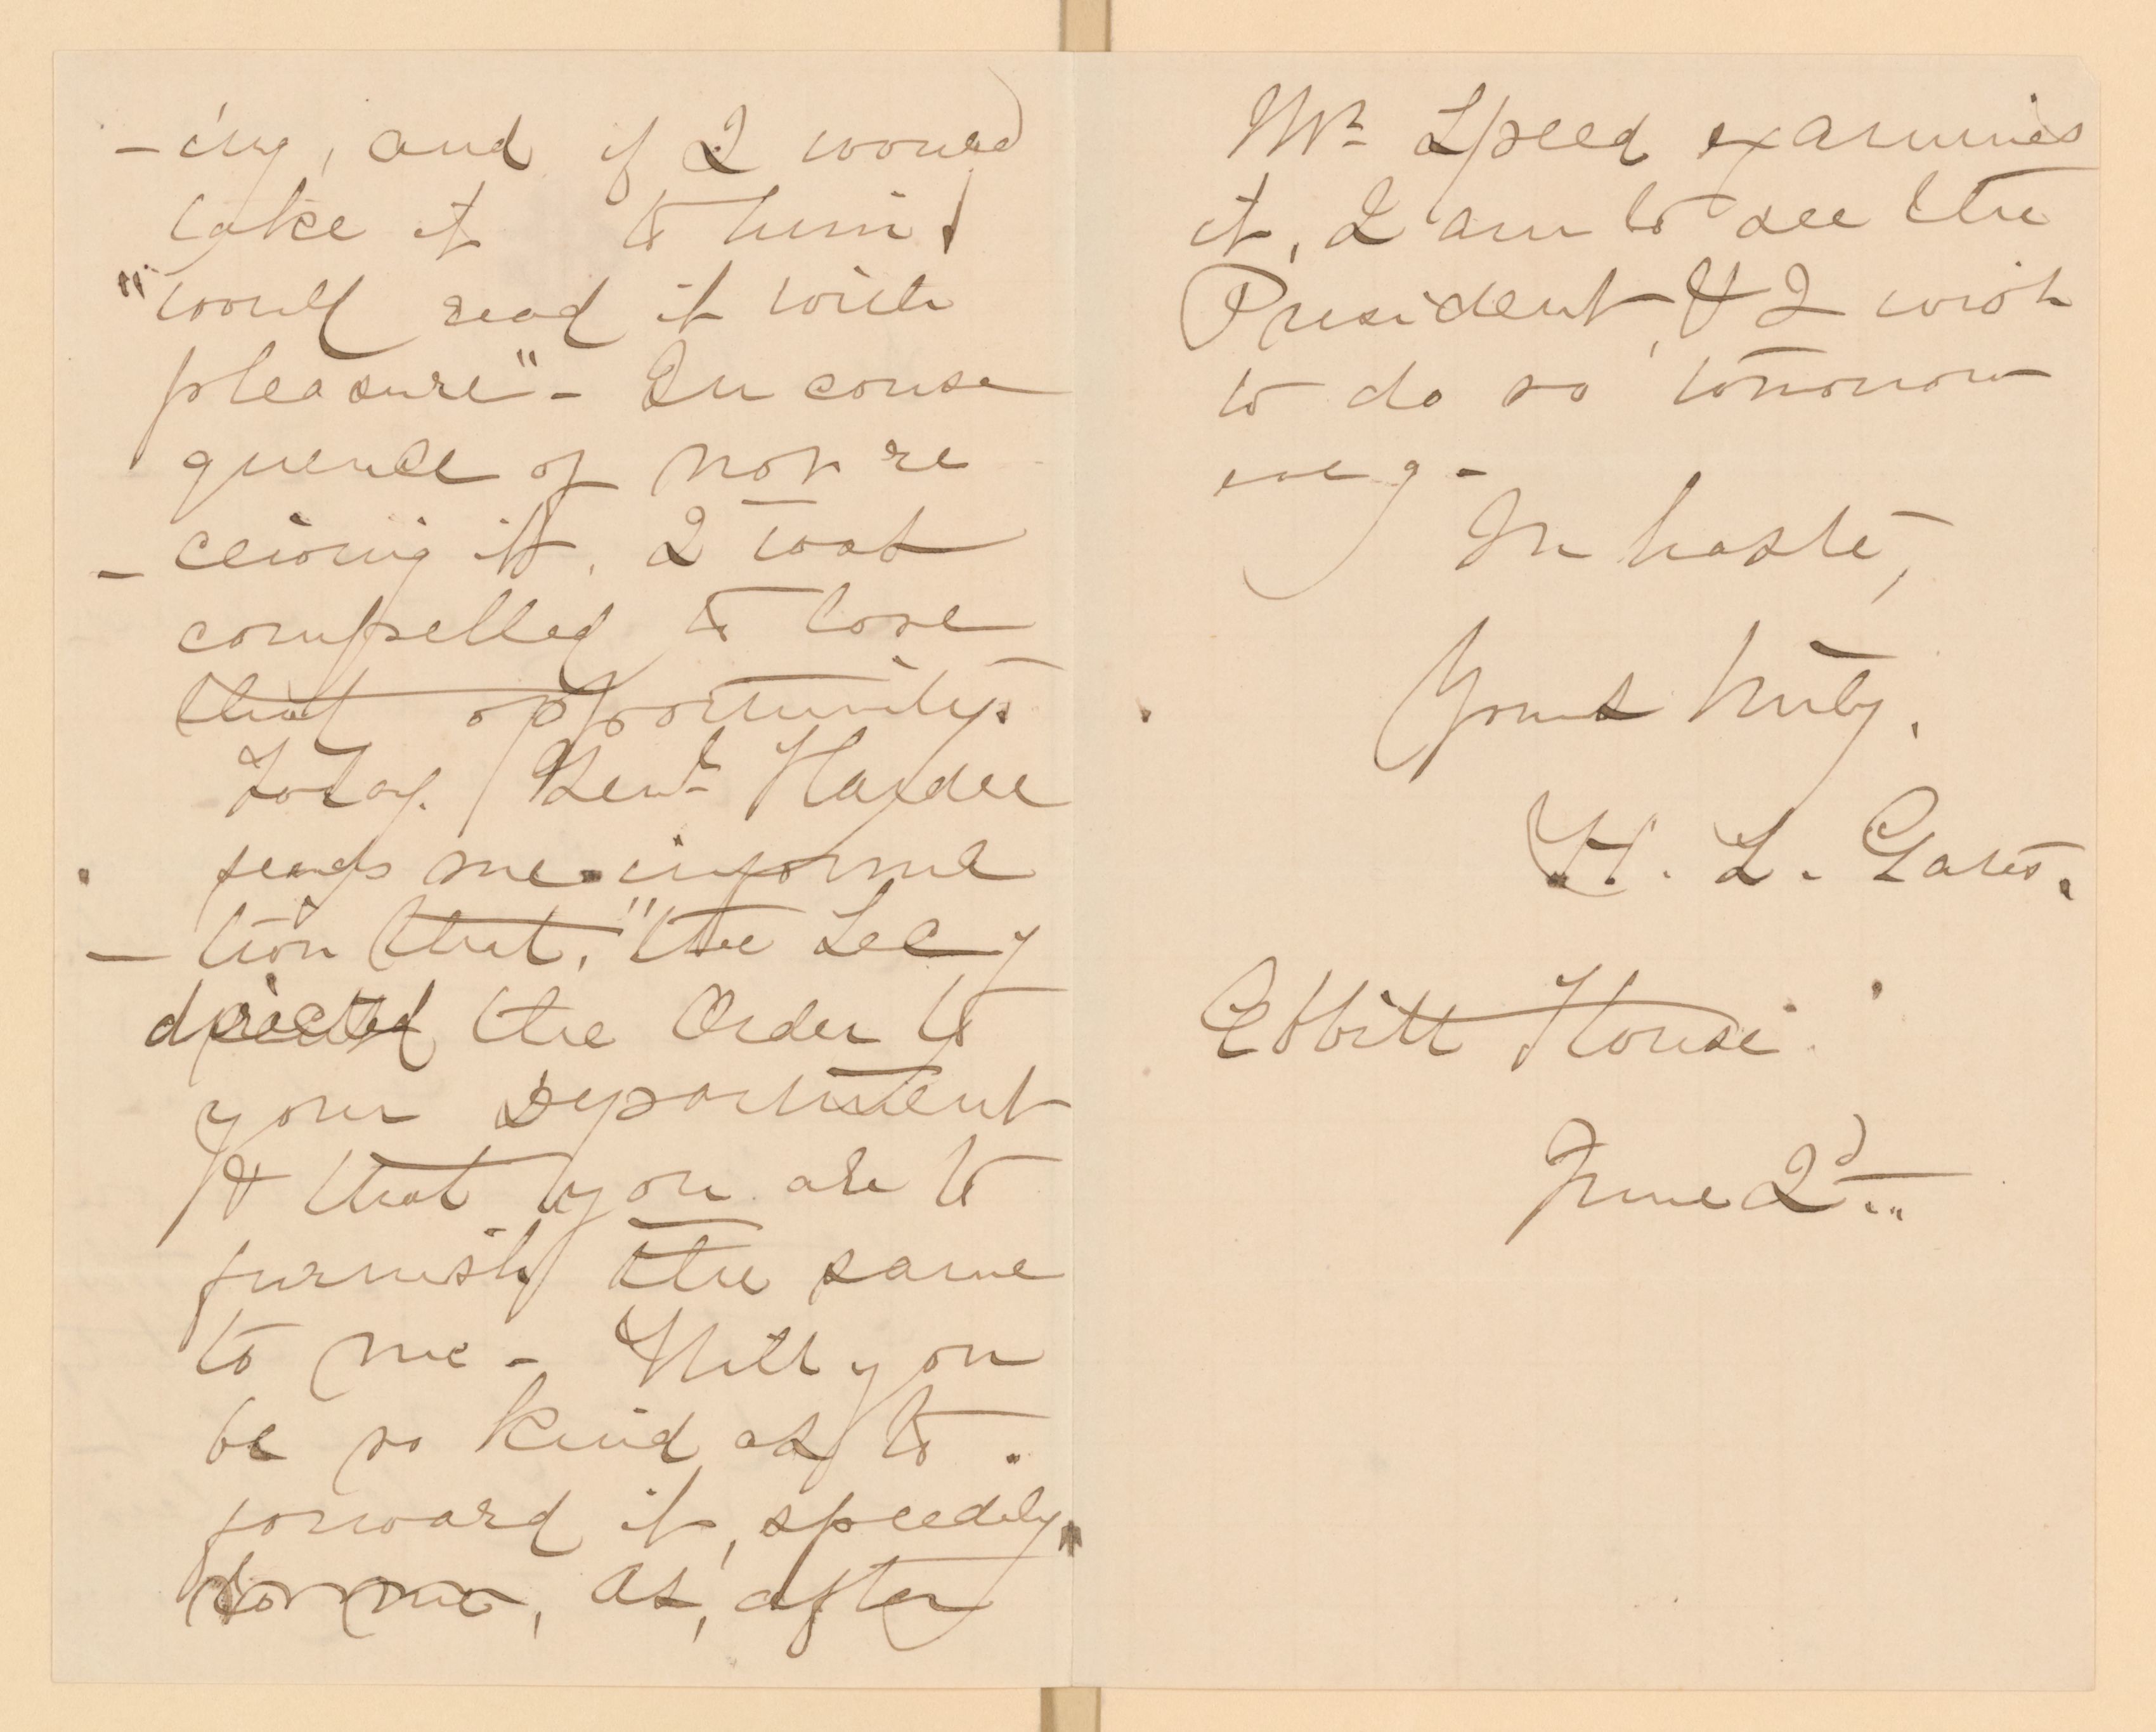 -ing, and if I would
take it to him
"would read it with
pleasure" - In conse
quence of not re
-ceiving it, I was
compelled to lose
that opportunity.
Today Genl Hardee
sends me informa
-tion that, "the Secy
directed the Order to
your Department
& that you are to
furnish the same
to me - Will you
be so kind as to
forward it, speedily
to me, as, after
Mr. Speed examines
it, I am to see the
President, & I wish
to do so tomorrow
eveg -
In haste,
Yours truly,
H. L. Gates.
Ebbitt House
June 2d